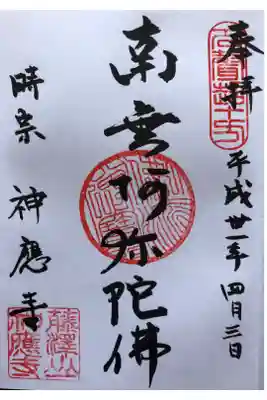 奉拝
平成廿一年四月三日
南無阿弥陀佛
時宗 神應寺